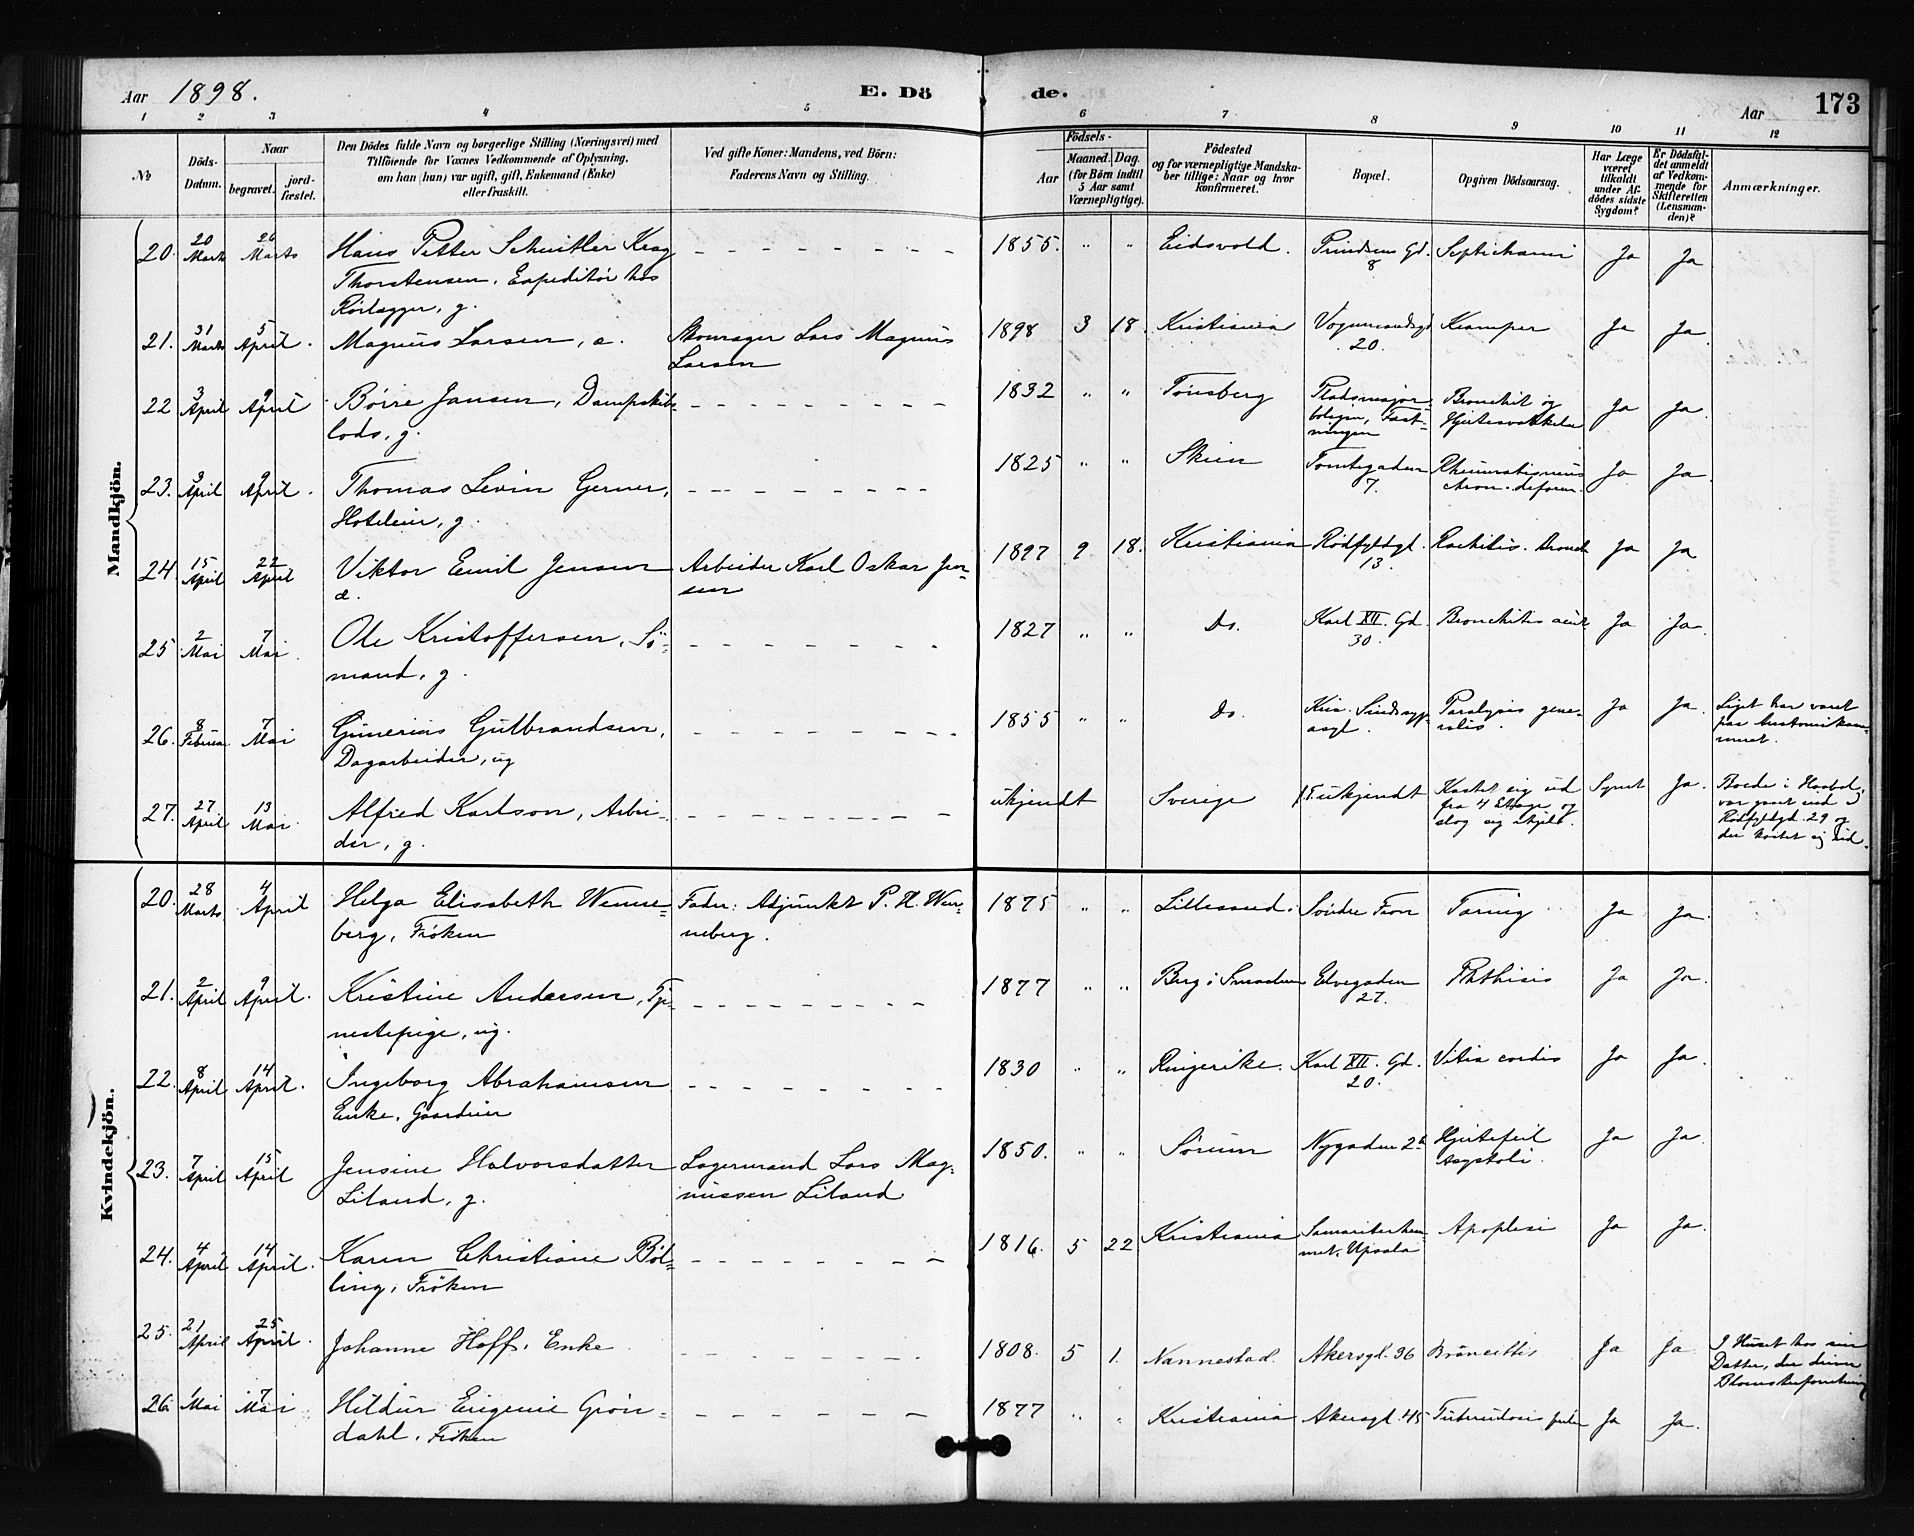 Aar 1898.
E. Dö
de.
Aar
173
1 2 3 4 5 6 7 8 9 10 11 12
No
Döds-Datum.
Naar
begravet. jordfæstet.
Den Dödes fulde Navn og borgerlige Stilling (Næringsvei) med
Tilföiende for Voxnes Vedkommende af Oplysning,
om han (hun) var ugift, gift, Enkemand (Enke)
eller fraskilt.
Ved gifte Koner: Mandens, ved Börn:
Faderens Navn og Stilling.
Födsels-
Aar
Maaned. Dag.
(for Börn indtil
5 Aar samt
Værnepligtige).
Födested
og for værnepligtige Mandska-
ber tillige: Naar og hvor
konfirmeret.
Bopæl.
Opgiven Dödsaarsag.
Har Læge
været
tilkaldt
under Af-
dödes sidste
Sygdom?
Er Dödsfal-
det anmeldt
af Vedkom-
mende for
Skifteretten
(Lensman-
den)?
Anmærkninger.
Mandkjön.
20. 20 Marts 26 Marts Hans Petter Schnitler Krag - - - 1855. " " Eidsvold. Prindsens Gd. 8 Septichæmi Ja Ja
Thorstensen, Expeditör hos
Rörlægger, g.
21. 31 Marts 5 April. Magnus Larsen, e. Skomager Lars Magnus 1898 3 18. Kristiania 20. Kramper Ja Ja
Larsen
22 3 April 9 April Börre Jansen, Dampskibs- - - - 1832 " " Tönsberg Pladsmajor- Bronchit og Ja Ja.
lods, g. boligen, Fæst-
ningen
23. 3 April 9 April. Thomas Levin Gerner, - - - 1825 " " Skien Tomtegaden 7. Rheumatismus Ja Ja.
Hoteleier, g. chron. deform.
24 15 April 22 April Viktor Emil Jensen Arbeider Karl Oskar Jen- 1897 9 18. Kristiania Rödfyldgd. 13. Rachitis. Bronch Ja Ja
e. sen
25 2 Mai 7 Mai. Ole Kristoffersen, Sö- - - - 1827 " " Do. Karl XII. Gd. 30. Bronchitis acut Ja Ja.
mand, g.
26. 8 Februar 7 Mai Gunerius Gulbrandsen, - - - 1855 " " Do. Kria. Sindssyge- Paralysis gene- Ja Ja. Liget har været
Dagarbeider, ug asyl. ralis. paa Anatomikam-
meret.
27. 27 April 13 Mai. Alfred Karlson, Arbei- - - - ukjendt Sverige ukjendt Kastet sig ud Synet Ja. Boede i Haabøl,
der, g. fra 4 Etage og var gaaet ind i
slog sig ihjel. Rödfyldgd. 29 og
der kastet sig ud.
Kvindekjön.
20. 28 Marts 4 April Helga Elisabeth Wenne- Fader: Adjunkt P. H. Wen- 1875 " " Lillesand. Söndre Fron Tæring Ja Ja.
berg, Fröken neberg.
21. 2 April 9 April. Kristine Andersen, Tje- - - - 1877 " " Berg i Smaalen Elvegaden 27. Phthisis Ja Ja.
nestepige, ug.
22. 8 April 14 April. Ingeborg Abrahamsen - - - 1830 " " Ringerike. Karl XII. Gd. 20. Vitia cordis Ja Ja.
Enke, Gaardeier
23. 7 April 15 April Jensine Halvorsdatter Lagermand Lars Mag- 1850. " " Sörum Nygaden 2 Hjertefeil Ja Ja
Liland, g. nussen Liland Asystoli.
24. 4 April 14 April. Karen Christiane Böl- - - - 1816. 5 22 Kristiania Samariterhem- Apoplexi Ja Ja.
ling, Fröken met, Upsala
25. 21 April 25 April. Johanne Hoff, Enke - - - 1808. 5 1. Nannestad. Akersgd. 36 Broncittis Ja Ja I Huset hos sin
Datter, der driver
Blomsterforretning
26. 1 Mai 7 Mai Hildur Eugenie Grön- - - - 1877 " " Kristiania Akersgd. 45 Tuberculosis pulm Ja Ja.
dahl, Fröken